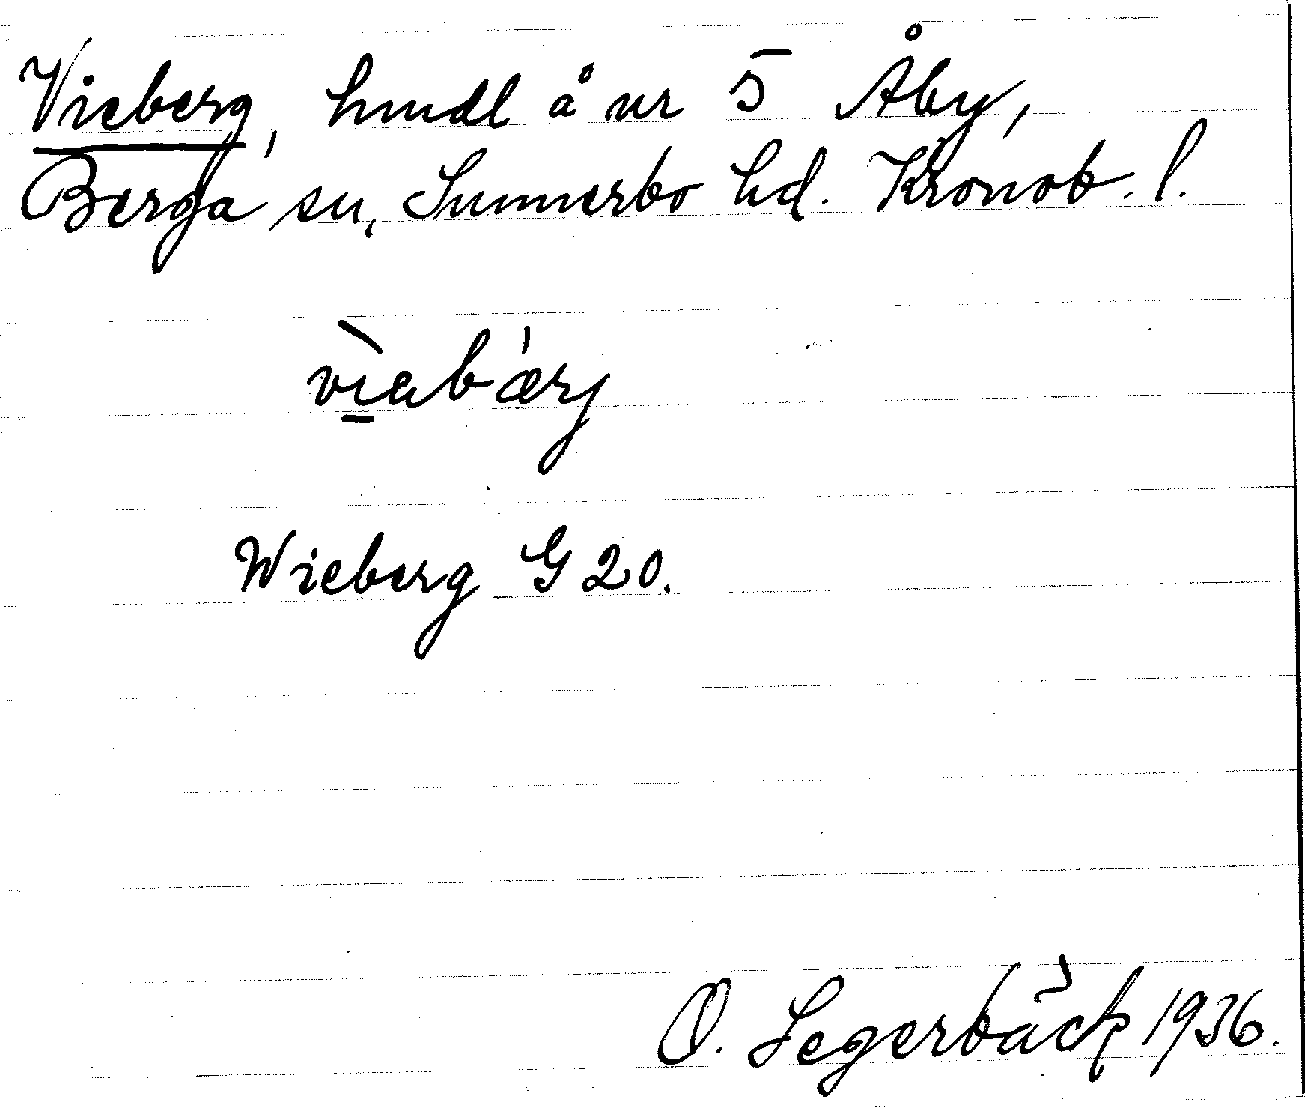 Vieberg, hmdl å nr 5 Åby,
Berga sn, Sunnerbo hd. Kronob. l.
vìabǽrj
Wieberg G 20.
O. Segerbäck 1936.